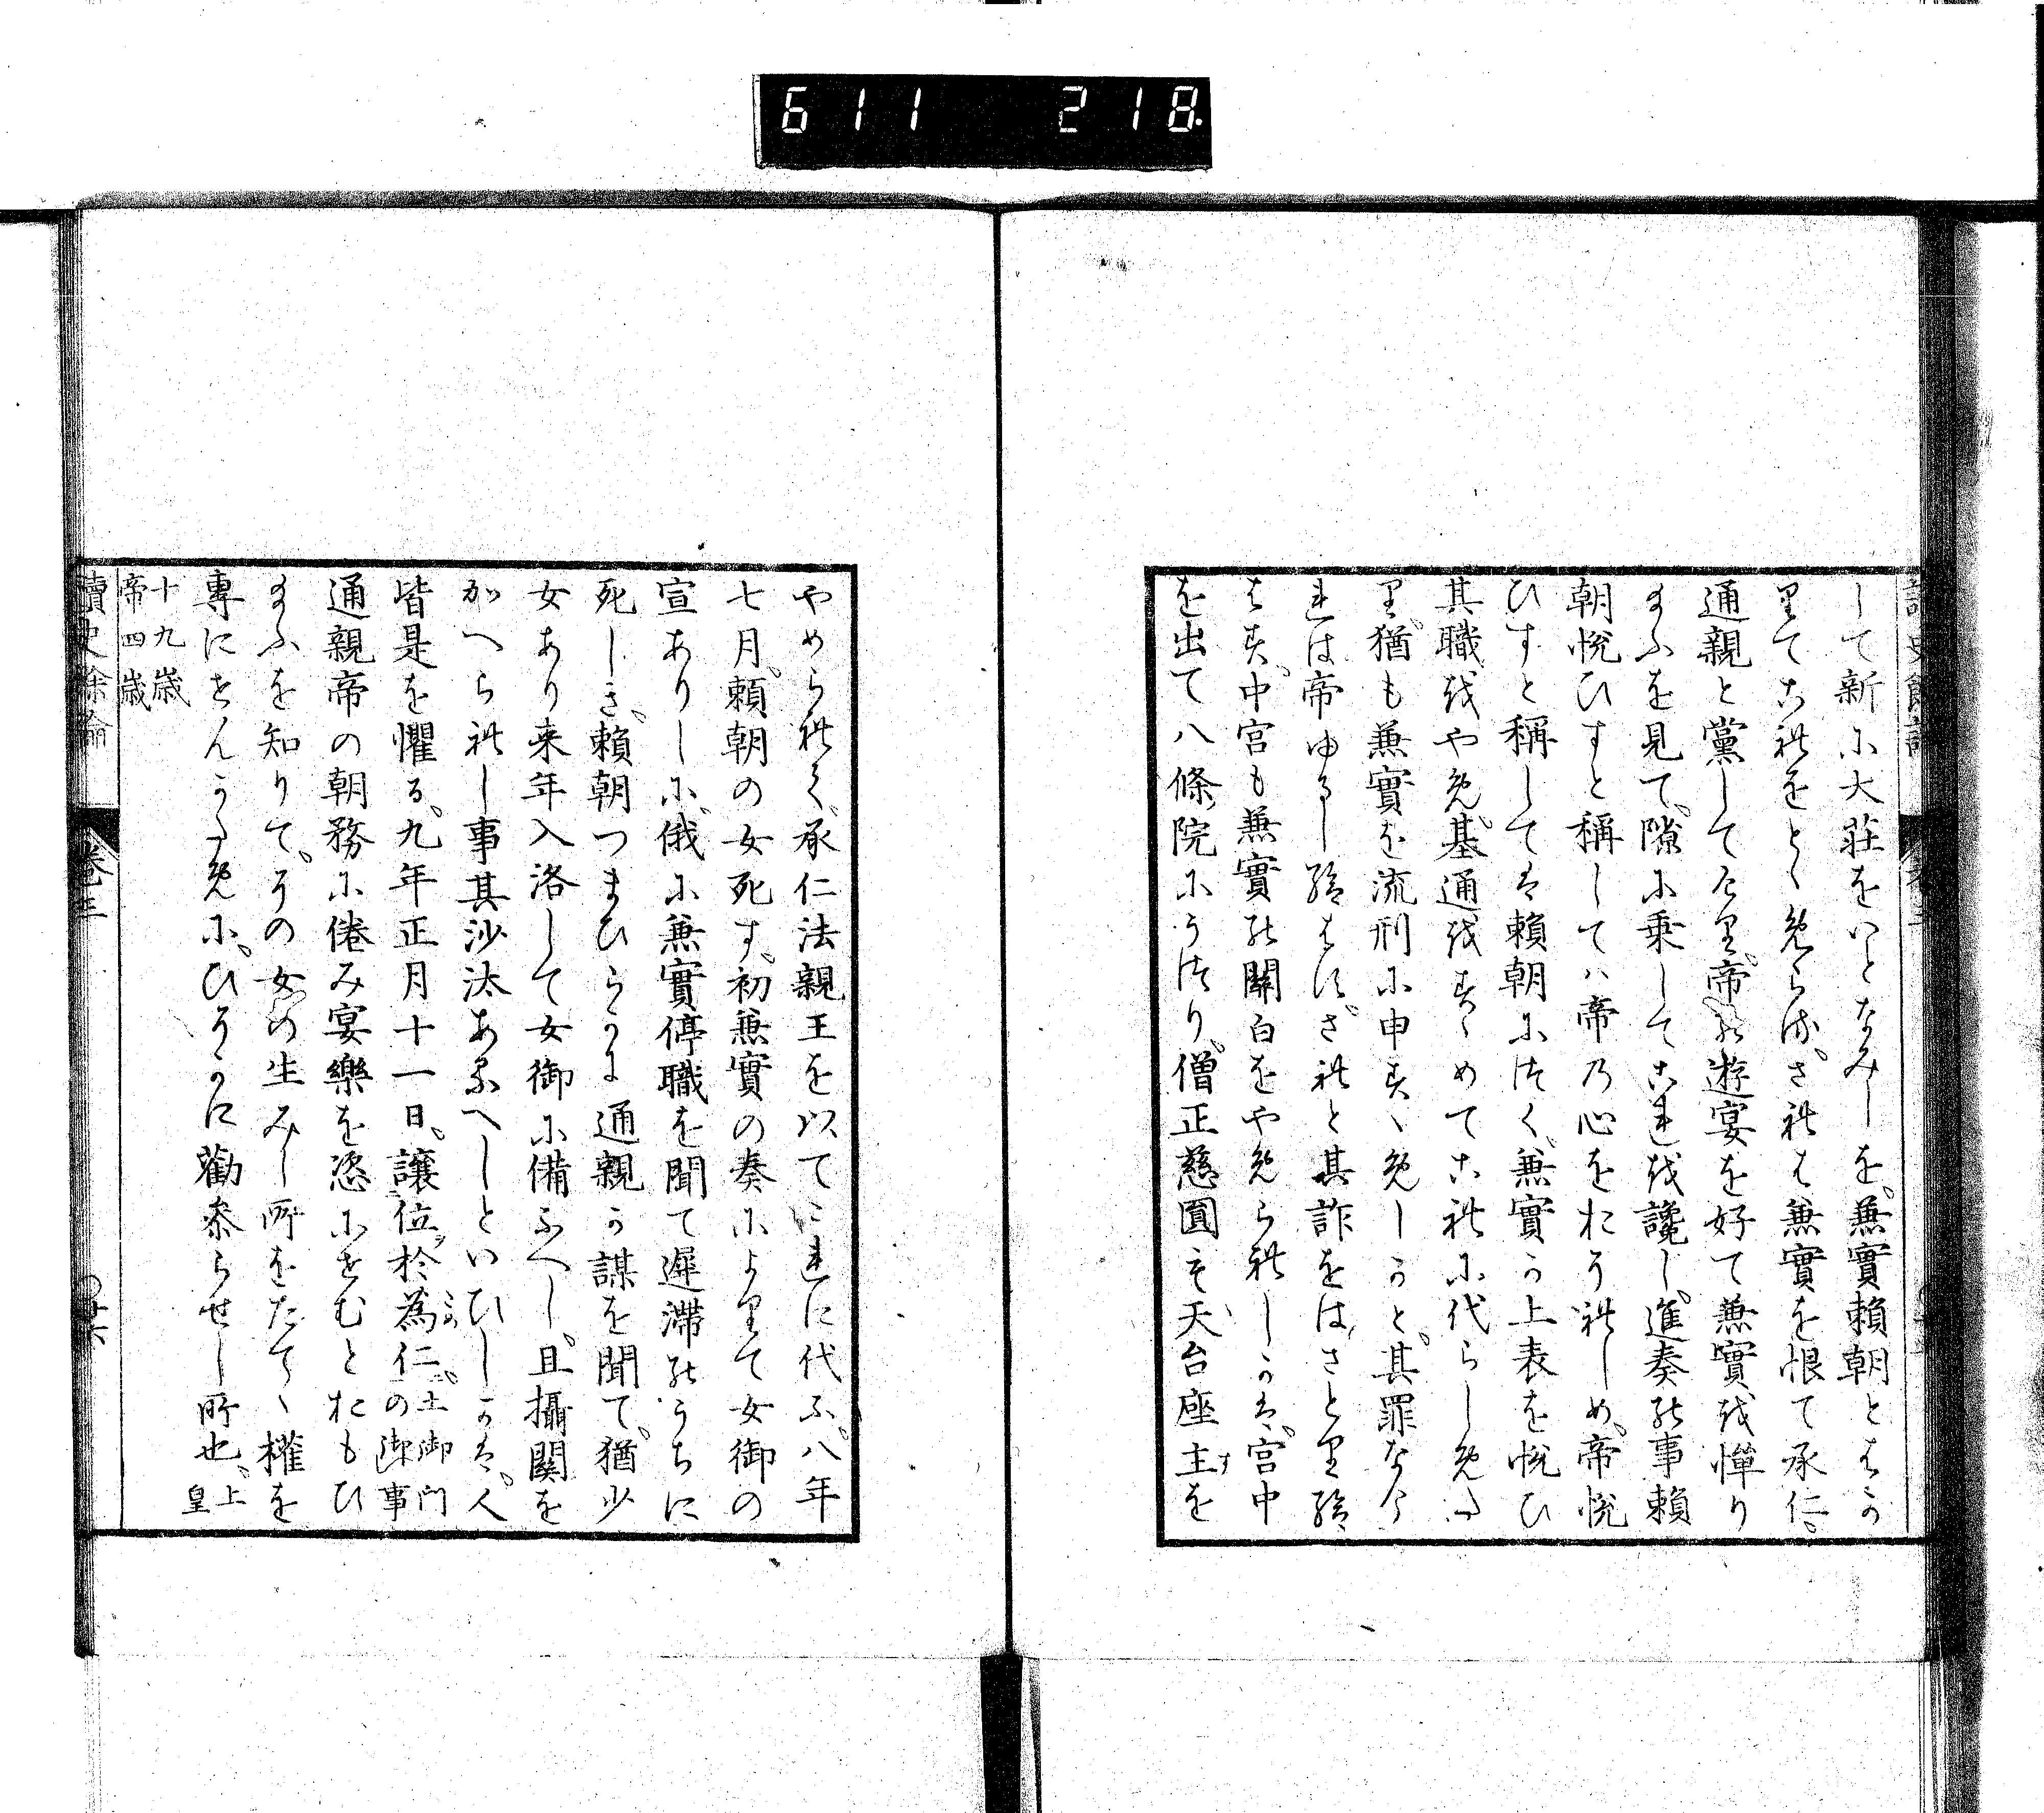 611 218
して新に大莊をいとなみしを。兼實賴朝とはか
りてこれをとゝめらる。されは兼實を恨て承仁。
通親と黨してたり。帝の遊宴を好て兼實を憚り
まふを見て。隙に乗してこれを讒し。進奏の事賴
朝悦ひすと稱しては帝の心をおそれしめ。帝悦
ひすと稱しては賴朝につく。兼實か上表を悦ひ
其職をやめ。基通をすゝめてこれに代らしめた
り。猶も兼實を流刑に申すゝめしかと。其罪なけ
れは帝ゆるし給はす。されと其詐をはさとり給
はす。中宮も兼實の關白をやめられしかは。宮中
を出て八條院にうつり。僧正慈圓も天台座主を
やめられて。承仁法親王を以てこれに代ふ。八年
七月。賴朝の女死す。初兼實の奏によりて女御の
宣ありしに。俄に兼實停職を聞て遲滯のうちに
死しき。賴朝つまひらかに通親か謀を聞て。猶少
女あり来年入洛して女御に備ふへし。且攝關を
かへられし事其沙汰あるへしといひしかは。人
皆是を懼る。九年正月十一日。讓位於為仁。土御門の御事
通親帝の朝務に倦み宴樂を恣にせむとおもひ
まふを知りて。その女の生みし所をたてゝ權を
專にせんかために。ひそかに勸参らせし所也。上皇
十九歳
帝四歳
讀史餘論 卷三